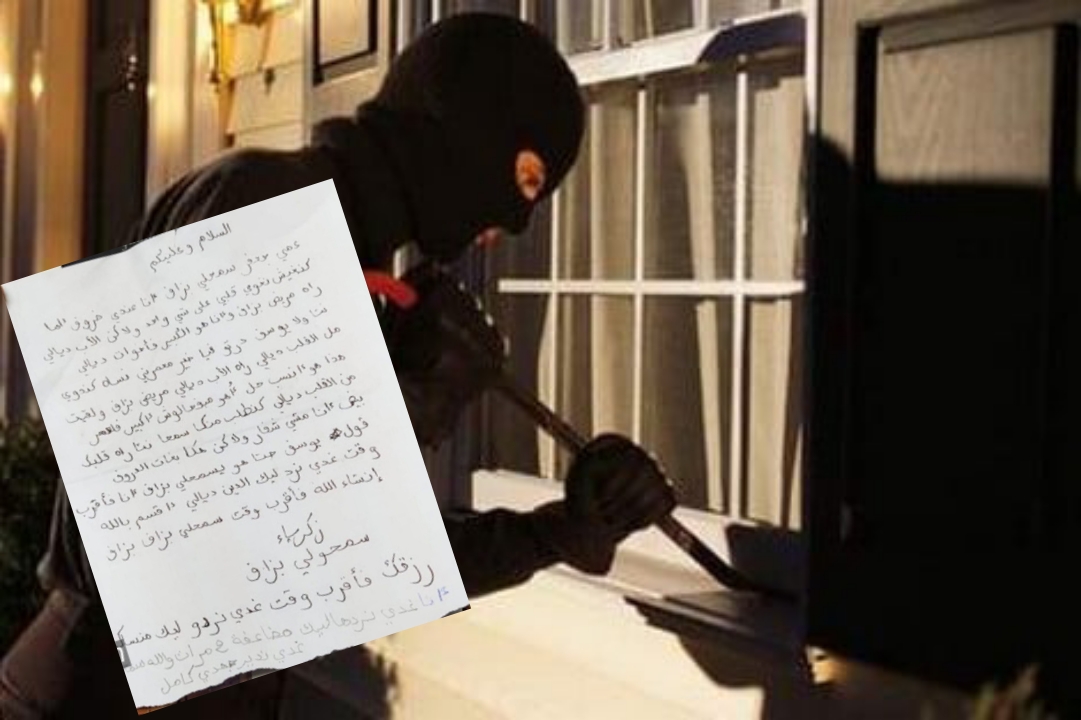 السلام وعليكم
عمي بوزفر سمحلي بزاف انا عندي ضروف اما
كنعيش نقوي قلبي على شي واحد ولاكن الأب ديالي
راه مريض بزاف وانا هو الكبير فأخوات ديالي
نتا ولا يوسف درتو فيا خير معمرني نساه كنحوي
من القلب ديالي راه الأب ديالي مريض بزاف ولقيت
هذا هو انسب حل
من القلب ديالي كنطلب منك سمحا نتا راه قليك
بيض انا مشي شفار ولاكن هكا بغات الضروف
قول يوسف حتا هو يسمحلي بزاف انا فأقرب
وقت غدي نرد ليك الدين ديالي اقسم بالله
إنشاء الله فأقرب وقت سمحلي بزاف بزاف
زكرياء
سمحولي بزاف
رزقك فأقرب وقت غدي نردو ليك
انا غدي نردها ليك مضاعفة مرات والله
غدي ندير جهدي كامل